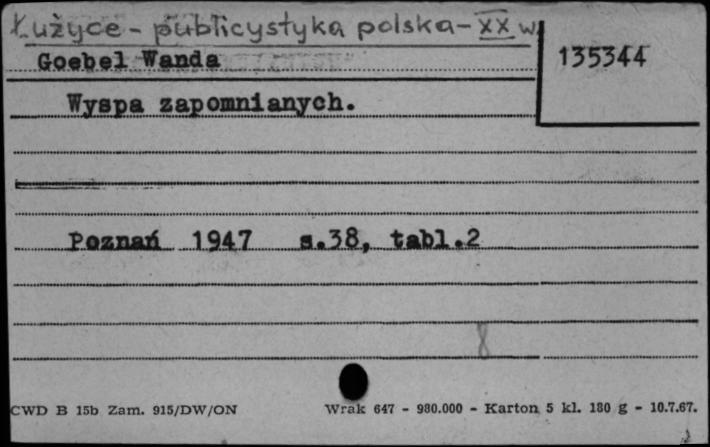 Łużyce - publicystyka polska - XX w.
Goebel Wanda
135344
Wyspa zapomnianych.
Poznań 1947 s.38, tabl.2
8
CWD B 15b Zam. 915/DW/ON Wrak 647 - 980.000 - Karton 5 kl. 180 g - 10.7.67.